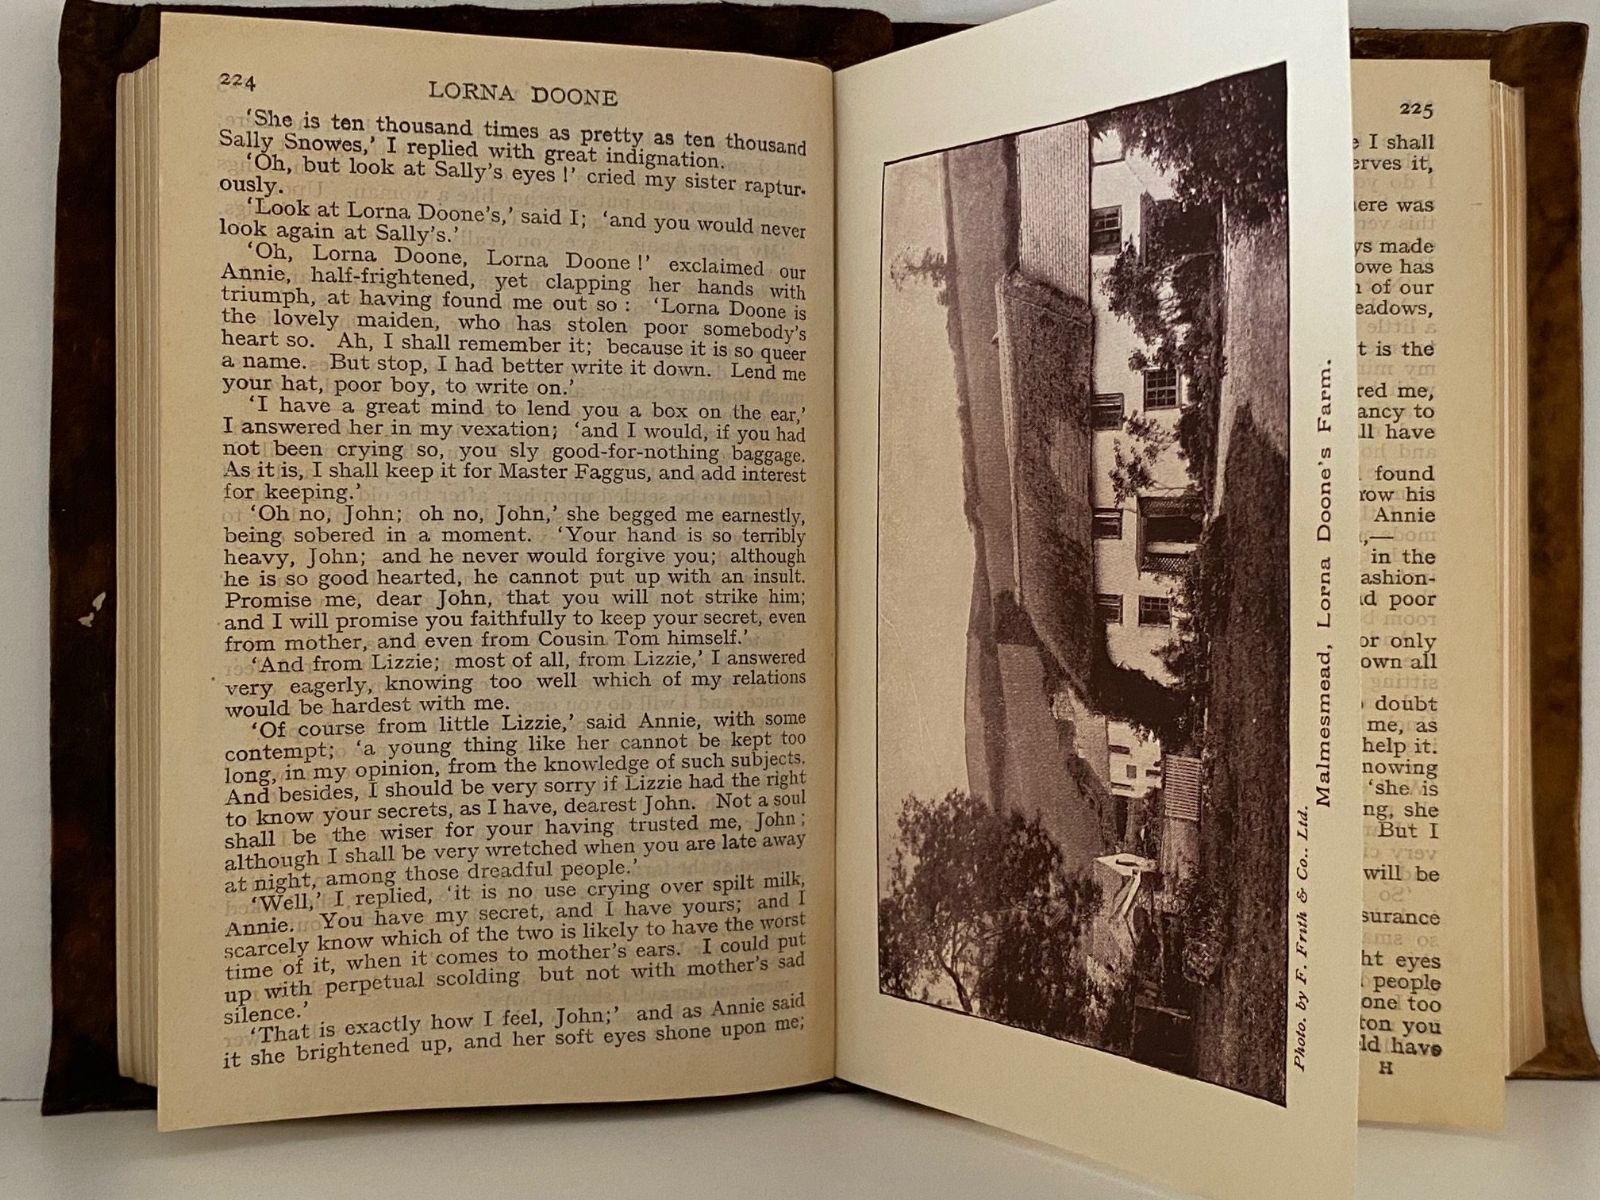 224
LORNA DOONE
'She is ten thousand times as pretty as ten thousand
Sally Snowes,' I replied with great indignation.
'Oh, but look at Sally's eyes!' cried my sister raptur-
ously.
'Look at Lorna Doone's,' said I; 'and you would never
look again at Sally's.'
'Oh, Lorna Doone, Lorna Doone!' exclaimed our
Annie, half-frightened, yet clapping her hands with
triumph, at having found me out so: 'Lorna Doone is
the lovely maiden, who has stolen poor somebody's
heart so. Ah, I shall remember it; because it is so queer
a name. But stop, I had better write it down. Lend me
your hat, poor boy, to write on.'
'I have a great mind to lend you a box on the ear,'
I answered her in my vexation; 'and I would, if you had
not been crying so, you sly good-for-nothing baggage.
As it is, I shall keep it for Master Faggus, and add interest
for keeping.'
'Oh no, John; oh no, John,' she begged me earnestly,
being sobered in a moment. 'Your hand is so terribly
heavy, John; and he never would forgive you; although
he is so good hearted, he cannot put up with an insult.
Promise me, dear John, that you will not strike him;
and I will promise you faithfully to keep your secret, even
from mother, and even from Cousin Tom himself.'
'And from Lizzie; most of all, from Lizzie,' I answered
very eagerly, knowing too well which of my relations
would be hardest with me.
'Of course from little Lizzie,' said Annie, with some
contempt; 'a young thing like her cannot be kept too
long, in my opinion, from the knowledge of such subjects.
And besides, I should be very sorry if Lizzie had the right
to know your secrets, as I have, dearest John. Not a soul
shall be the wiser for your having trusted me, John;
although I shall be very wretched when you are late away
at night, among those dreadful people.'
'Well,' I replied, 'it is no use crying over spilt milk,
Annie. You have my secret, and I have yours; and I
scarcely know which of the two is likely to have the worst
time of it, when it comes to mother's ears. I could put
up with perpetual scolding but not with mother's sad
silence.'
'That is exactly how I feel, John;' and as Annie said
it she brightened up, and her soft eyes shone upon me;
Photo. by F. Frith & Co., Ltd.
Malmesmead, Lorna Doone's Farm.
225
I shall
it,
was
made
has
of our
is the
me,
to
have
found
his
Annie
in the
poor
only
all
doubt
me, as
help it.
'she is
she
But I
will be
eyes
people
too
you
have
H